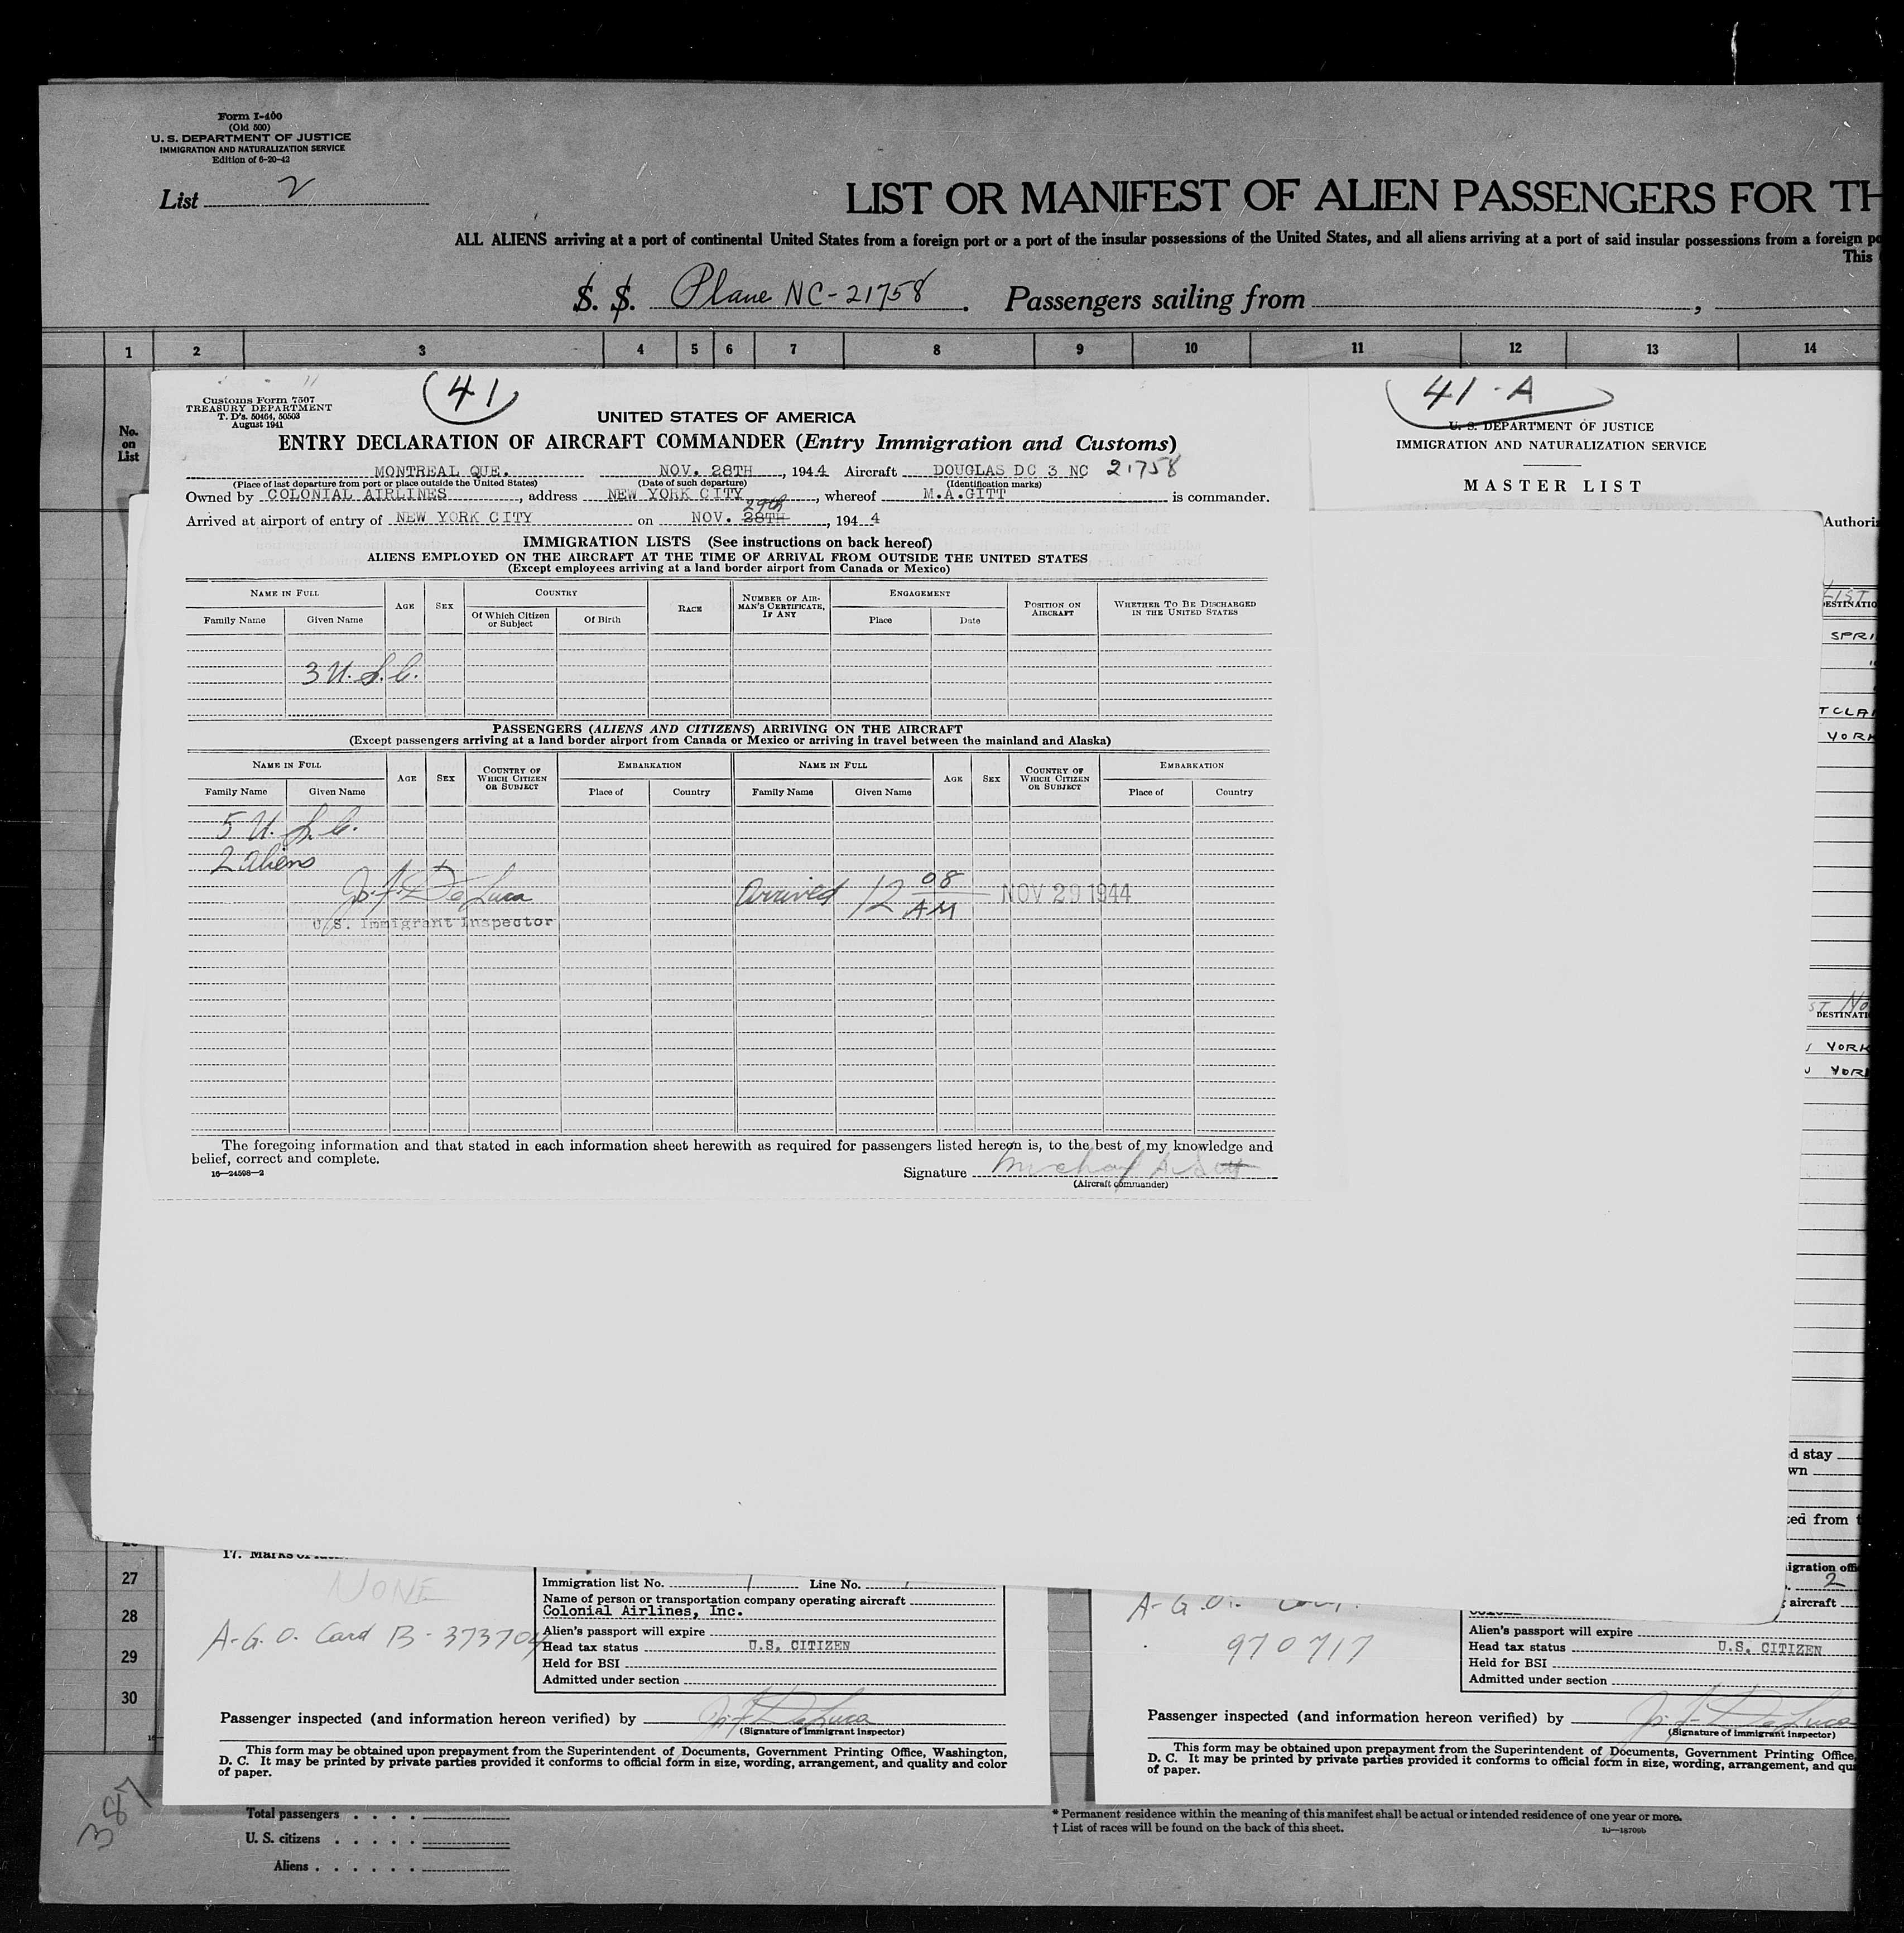 Form I-400
(Old 500)
U. S. DEPARTMENT OF JUSTICE
IMMIGRATION AND NATURALIZATION SERVICE
Edition of 6-20-42
List 2
LIST OR MANIFEST OF ALIEN PASSENGERS FOR TH
ALL ALIENS arriving at a port of continental United States from a foreign port or a port of the insular possessions of the United States, and all aliens arriving at a port of said insular possessions from a foreign po
This
S. S. Plane NC-21758. Passengers sailing from ,
1 2 3 4 5 6 7 8 9 10 11 12 13 14
No.
on
List
Customs Form 7507
TREASURY DEPARTMENT
T. D's. 50464, 50503
August 1941
41
UNITED STATES OF AMERICA
ENTRY DECLARATION OF AIRCRAFT COMMANDER (Entry Immigration and Customs)
MONTREAL QUE. NOV. 28TH, 1944 Aircraft DOUGLAS DC 3 NC 21758
(Place of last departure from port or place outside the United States) (Date of such departure) (Identification marks)
Owned by COLONIAL AIRLINES, address NEW YORK CITY, whereof M.A.GITT is commander.
29th
Arrived at airport of entry of NEW YORK CITY on NOV. 28TH, 194 4
IMMIGRATION LISTS (See instructions on back hereof)
ALIENS EMPLOYED ON THE AIRCRAFT AT THE TIME OF ARRIVAL FROM OUTSIDE THE UNITED STATES
(Except employees arriving at a land border airport from Canada or Mexico)
NAME IN FULL AGE SEX COUNTRY RACE NUMBER OF AIRMAN'S CERTIFICATE, IF ANY ENGAGEMENT POSITION ON AIRCRAFT WHETHER TO BE DISCHARGED IN THE UNITED STATES
Family Name Given Name Of Which Citizen or Subject Of Birth Place Date
3 U.S.C.
PASSENGERS (ALIENS AND CITIZENS) ARRIVING ON THE AIRCRAFT
(Except passengers arriving at a land border airport from Canada or Mexico or arriving in travel between the mainland and Alaska)
NAME IN FULL AGE SEX COUNTRY OF WHICH CITIZEN OR SUBJECT EMBARKATION NAME IN FULL AGE SEX COUNTRY OF WHICH CITIZEN OR SUBJECT EMBARKATION
Family Name Given Name Place of Country Family Name Given Name Place of Country
5 U.S.C.
2 Aliens
J. F. DeLuca Arrived 12 08 AM NOV 29 1944
U.S. Immigrant Inspector
The foregoing information and that stated in each information sheet herewith as required for passengers listed hereon is, to the best of my knowledge and
belief, correct and complete.
16—24598-2
Signature Michael A. Gitt
(Aircraft commander)
41-A
U. S. DEPARTMENT OF JUSTICE
IMMIGRATION AND NATURALIZATION SERVICE
MASTER LIST
Authoriz
DESTINATIO
SPRI
"
TCLAI
YORK
DESTINATI
YORK
YORK
d stay
wn
ted from t
igration offi
2
aircraft
27
28
29
30
NONE
A.G.O. Card B-373704
Immigration list No. 1 Line No.
Name of person or transportation company operating aircraft
Colonial Airlines, Inc.
Alien's passport will expire
Head tax status U.S. CITIZEN
Held for BSI
Admitted under section
Passenger inspected (and information hereon verified) by J. F. DeLuca
(Signature of immigrant inspector)
This form may be obtained upon prepayment from the Superintendent of Documents, Government Printing Office, Washington,
D. C. It may be printed by private parties provided it conforms to official form in size, wording, arrangement, and quality and color
of paper.
A-G.O.
970717
Alien's passport will expire
Head tax status U.S. CITIZEN
Held for BSI
Admitted under section
Passenger inspected (and information hereon verified) by J. F. DeLuca
(Signature of immigrant inspector)
This form may be obtained upon prepayment from the Superintendent of Documents, Government Printing Office,
D. C. It may be printed by private parties provided it conforms to official form in size, wording, arrangement, and qu
of paper.
387
Total passengers
U. S. citizens
Aliens
* Permanent residence within the meaning of this manifest shall be actual or intended residence of one year or more.
† List of races will be found on the back of this sheet.